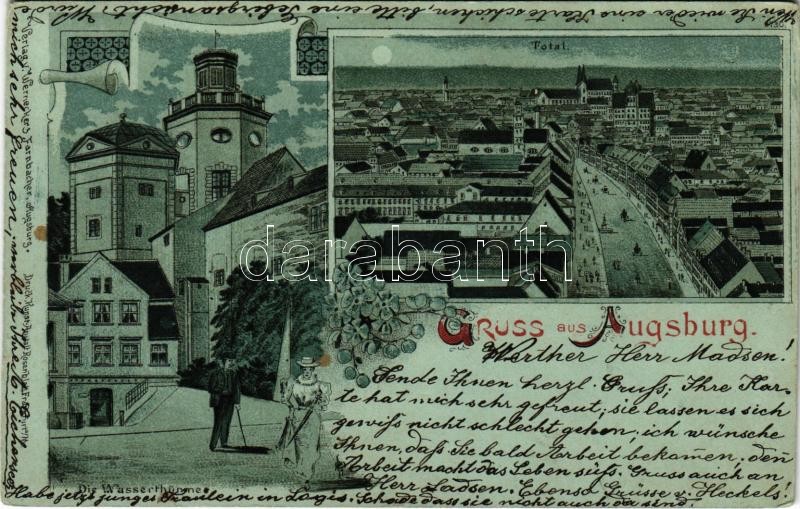 Wen Sie wieder eine Karte schicken, bitte eine Gebirgsansicht. Würde
mich sehr freuen,
Verlag v. Werneyker Farnbacher, Augsburg.
Total.
darabanth
.com
Gruss aus Augsburg.
Die Wasserthürme
Werther Herr Madsen!
Sende Ihnen herzl. Gruß, Ihre Kar-
te hat mich sehr gefreut, sie lassen es sich
gewiß nicht schlecht gehen, ich wünsche
Ihnen, daß Sie bald Arbeit bekommen, den
Arbeit macht das Leben süß. Gruss auch an
Herr Ladsen. Ebenso Grüsse v. Heckels!
Habe jetzt junges Fräulein in Logis. Schade dass sie nicht auch da sind.